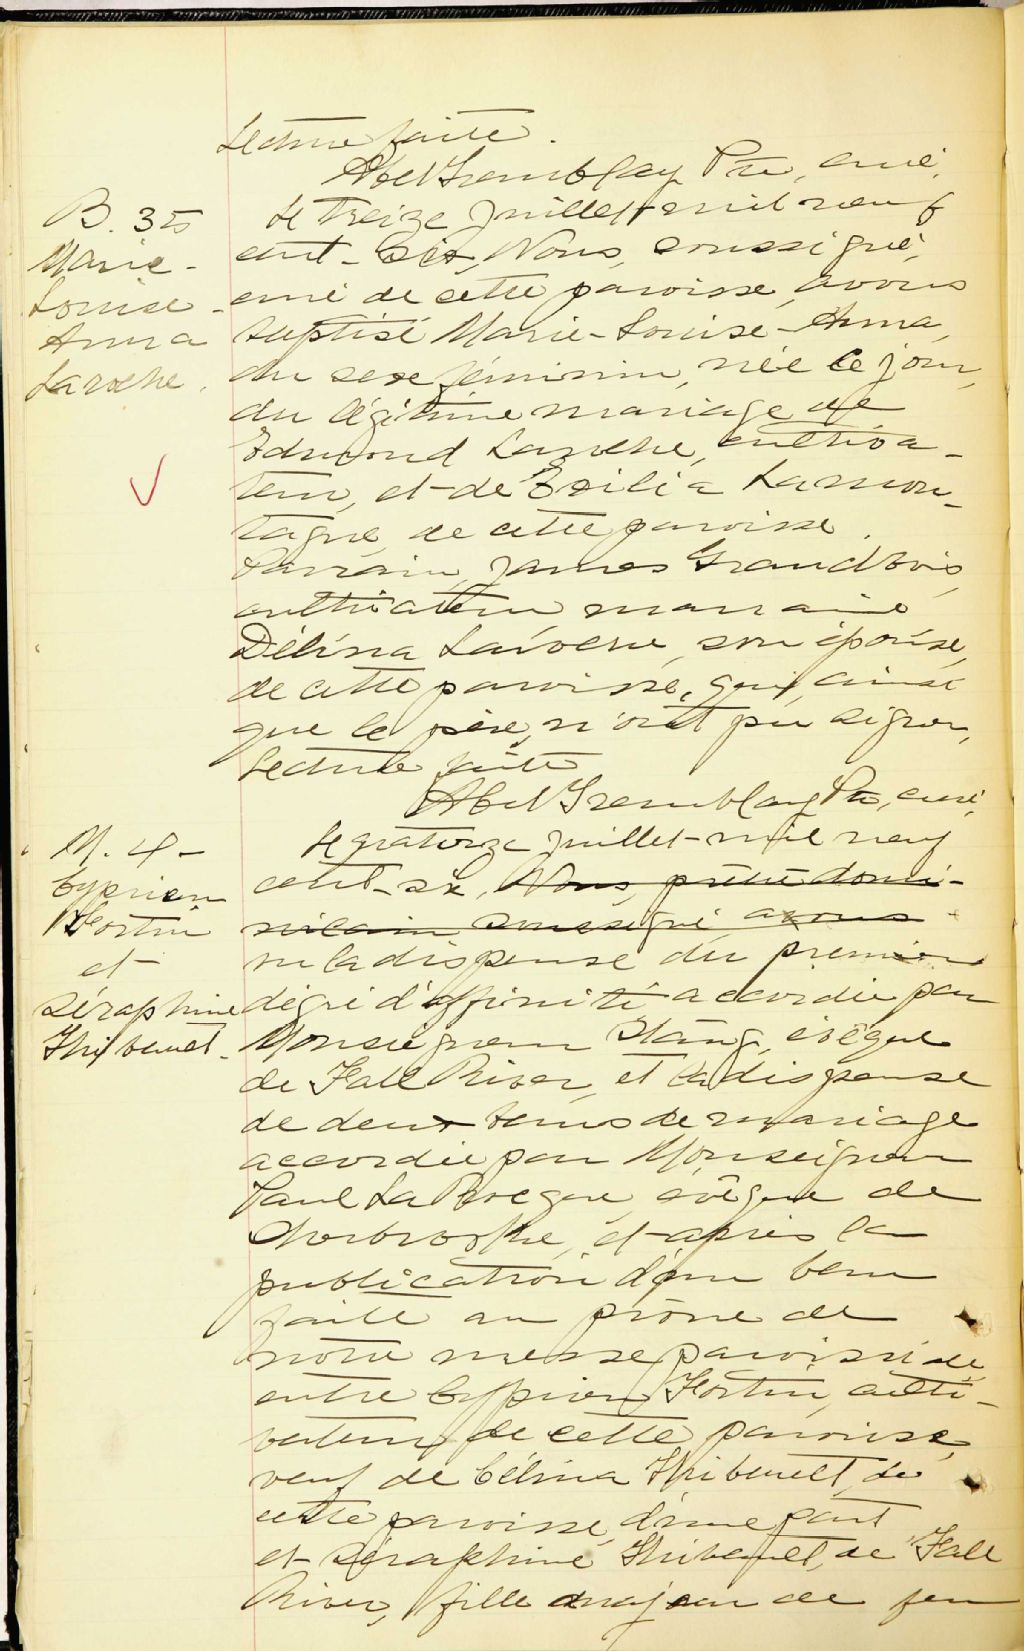 Lecture faite.
Abel Tremblay Ptre, curé.
B. 35
Marie-
Louise-
Anna
Laroche.
Le treize Juillet mil neuf
cent-six, Nous, soussigné,
curé de cette paroisse, avons
baptisé Marie-Louise-Anna,
du sexe féminin, née ce jour,
du légitime mariage de
Edmond Laroche, cultiva-
teur, et de Exilia Lamon-
tagne, de cette paroisse.
Parrain, James Grandbois,
cultivateur marraine
Délina Laroche, son épouse,
de cette paroisse, qui, ainsi
que le père, n'ont pu signer,
Lecture faite
Abel Tremblay Ptre, curé,
M. 4-
Cyprien
Fortin
et
Séraphine
Thibeault-
Le quatorze Juillet-mil neuf
cent-six, Nous, prêtre domi-
nicain soussigné avons
vu la dispense du premier
dégré d'affinité accordée par
Monseigneur Stang, évêque
de Fall River, et la dispense
de deux bans de mariage
accordée par Monseigneur
Paul LaRocque, évêque de
Sherbrooke, et après la
publication d'un ban
faite au prône de
notre messe paroissiale,
entre Cyprien Fortin, culti-
vateur, de cette paroisse,
veuf de Célina Thibeault, de
cette paroisse, d'une part
et Séraphine Thibeault, de Fall
River, fille majeure de feu